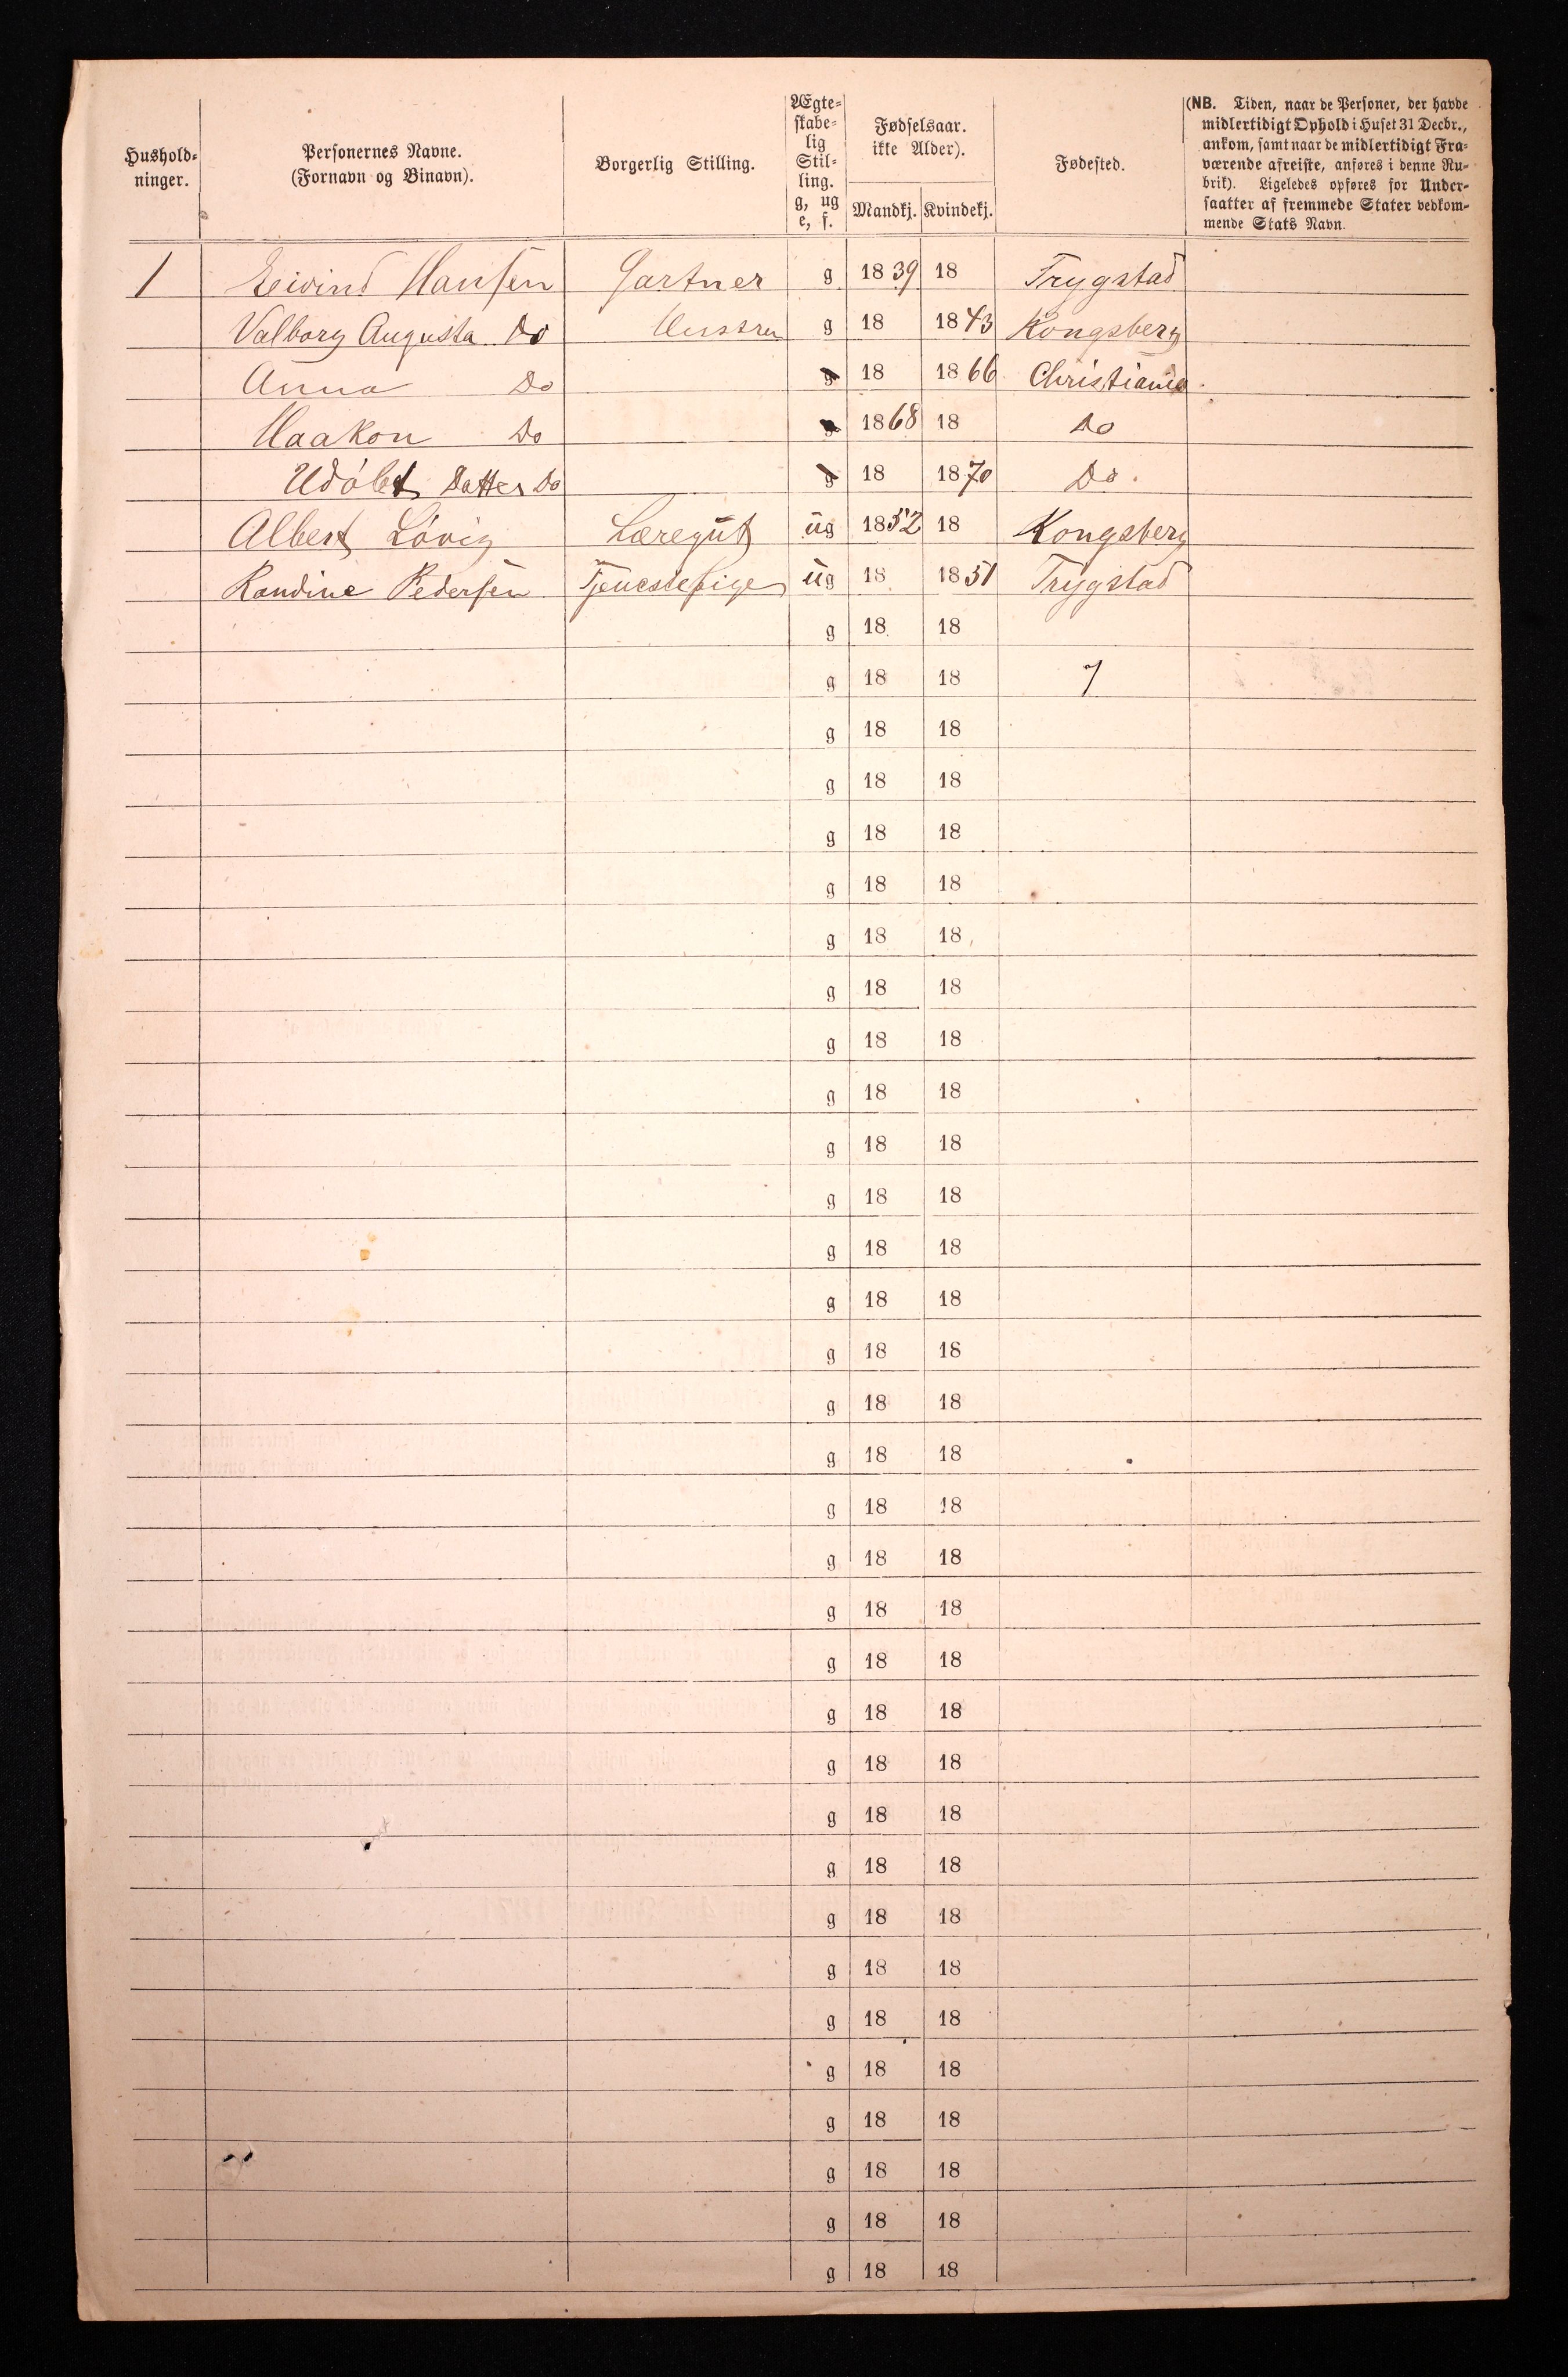 Hushold-
ninger.
Personernes Navne.
(Fornavn og Binavn).
Borgerlig Stilling.
Ægte-
skabe-
lig
Stil-
ling.
g, ug
e, f.
Fødselsaar.
ikke Alder).
Mandkj. Kvindekj.
Fødested.
(NB. Tiden, naar de Personer, der havde
midlertidigt Ophold i Huset 31 Decbr.,
ankom, samt naar de midlertidigt Fra-
værende afreiste, anføres i denne Ru-
brik). Ligeledes opføres for Under-
saatter af fremmede Stater vedkom-
mende Stats Navn.
1 Eivind Hansen Gartner g 1839 18 Trygstad
Valborg Augusta Do Hustru g 18 1843 Kongsberg
Anna Do g 18 1866 Christiania
Haakon Do g 1868 18 Do
Udöbt Datter Do g 18 1870 Do.
Albert Lövig Læregut ug 1852 18 Kongsberg
Randine Pedersen Tjenestepige ug 18 1851 Trygstad
g 18 18
g 18 18 7
g 18 18
g 18 18
g 18 18
g 18 18
g 18 18
g 18 18
g 18 18
g 18 18
g 18 18
g 18 18
g 18 18
g 18 18
g 18 18
g 18 18
g 18 18
g 18 18
g 18 18
g 18 18
g 18 18
g 18 18
g 18 18
g 18 18
g 18 18
g 18 18
g 18 18
g 18 18
g 18 18
g 18 18
g 18 18
g 18 18
g 18 18